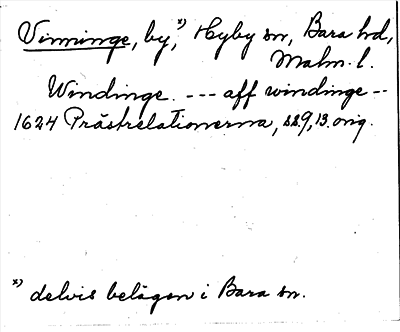 Vinninge, by,*) Hyby sn, Bara hd,
Malm. l.
Windinge. --- aff windinge --
1624 Prästrelationerna, ss9, 13. orig.
*) delvis belägen i Bara sn.